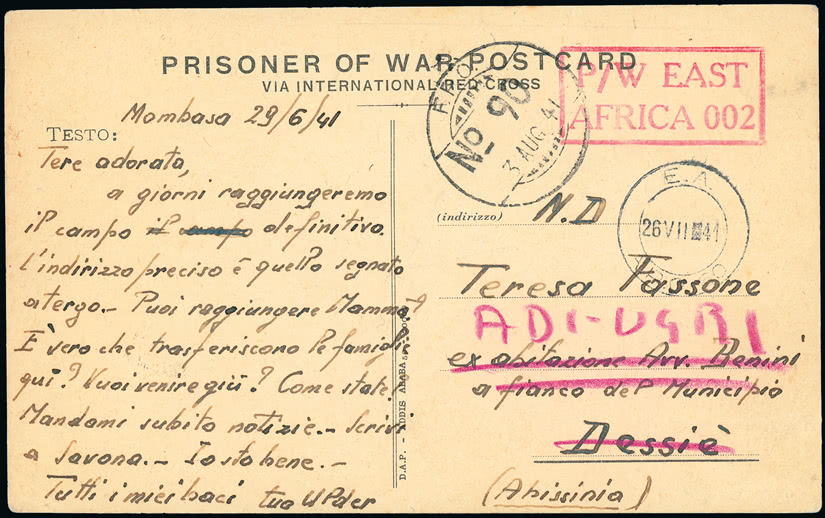 PRISONER OF WAR POSTCARD
VIA INTERNATIONAL RED CROSS
P/W EAST
AFRICA 002
F.P.O.
No 90
3 AUG 41
E.A.
26 VII 41
TESTO:
Mombasa 29/6/41
Tere adorata,
a giorni raggiungeremo
il campo il campo definitivo.
L'indirizzo preciso è quello segnato
a tergo.- Puoi raggiungere Mamma?
È vero che trasferiscono le famiglie
qui? Vuoi venire giù? Come state?
Mandami subito notizie.- Scrivi
a Savona.- Io sto bene.-
Tutti i miei baci tuo
D.A.P. - ADDIS ABABA
(indirizzo)
N.D
Teresa Tassone
ADI-UGRI
ex abitazione Avv. Benini
a fianco del Municipio
Dessiè
(Abissinia)